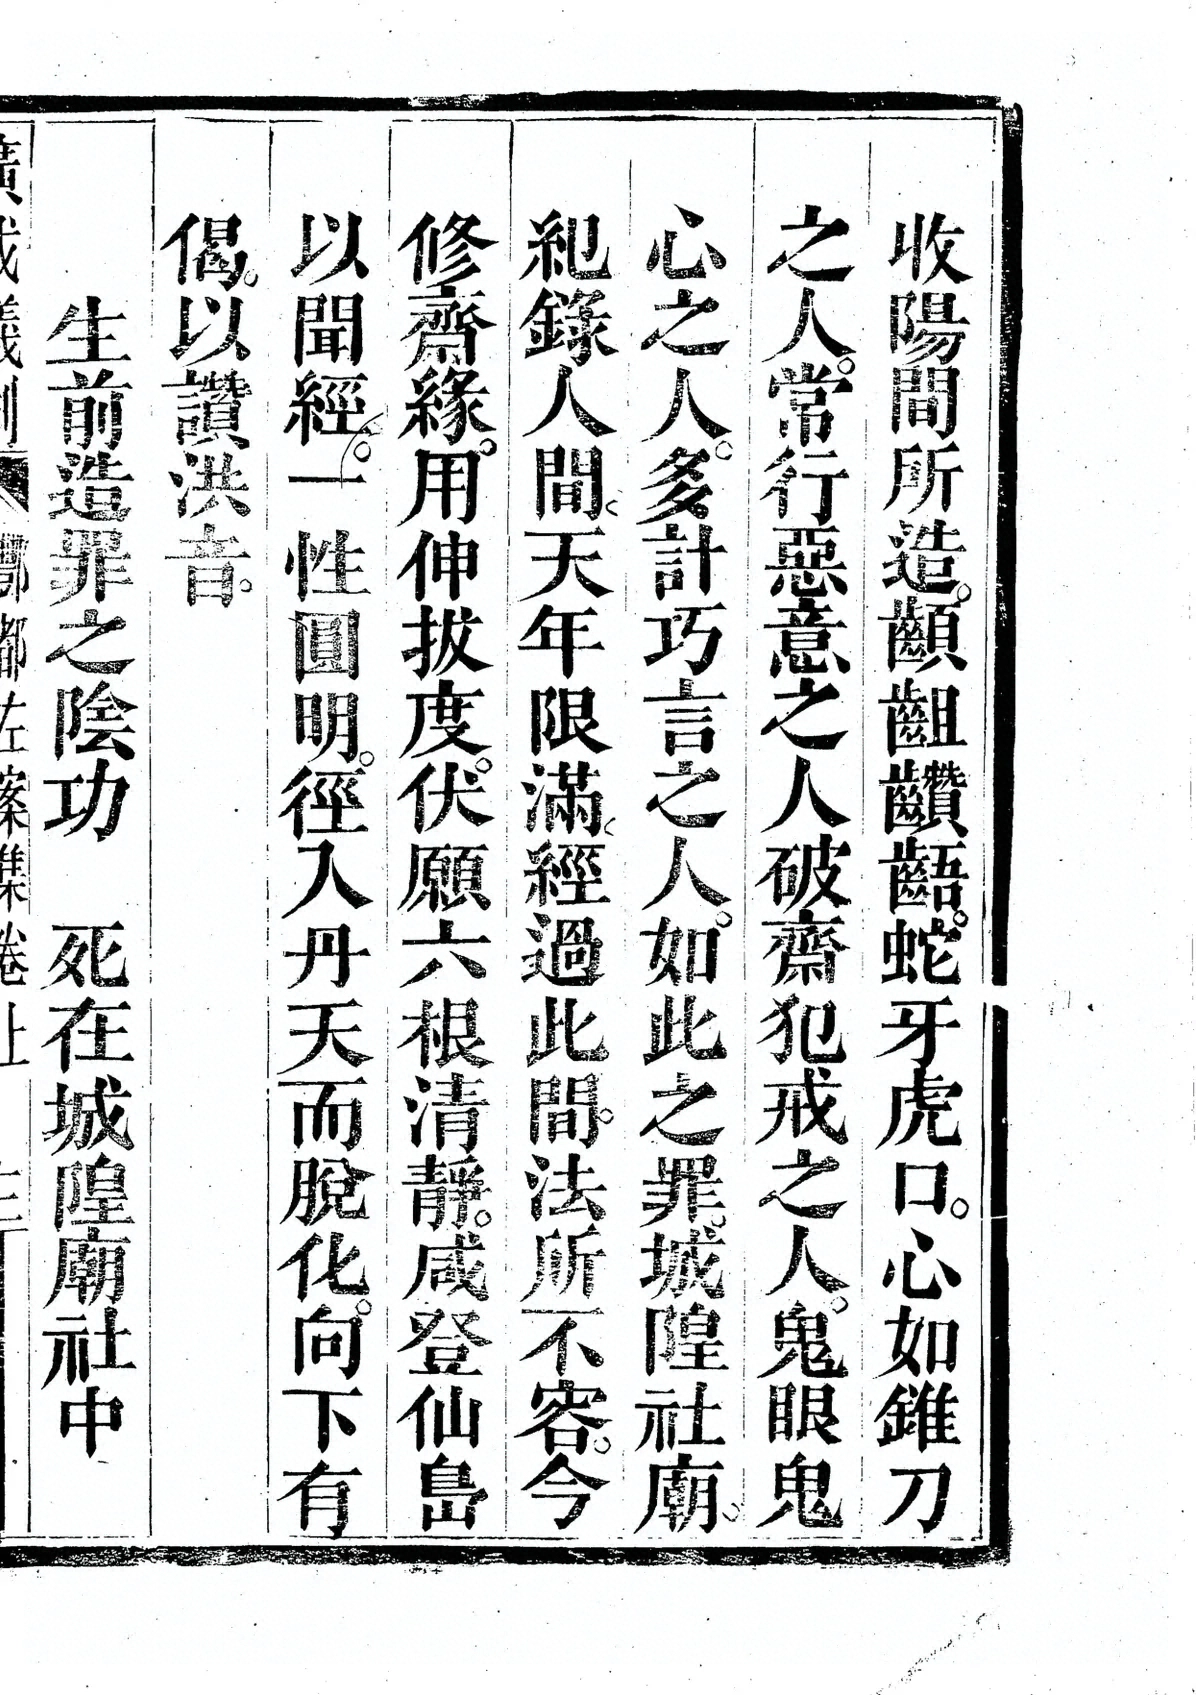 收陽間所造。齻齟齾齬。蛇牙虎口。心如錐刀
之人。常行惡意之人破齋犯戒之人。鬼眼鬼
心之人。多計巧言之人。如此之罪。城隍社廟。
紀錄人間。天年限滿。經過此間。法所不容。今
修齋緣。用伸拔度。伏願六根清靜。咸登仙島
以聞經。一性圓明。徑入丹天而脫化。向下有
偈。以讚洪音。
生前造罪之陰功　死在城隍廟社中
廣成儀制 酆都左案集卷上